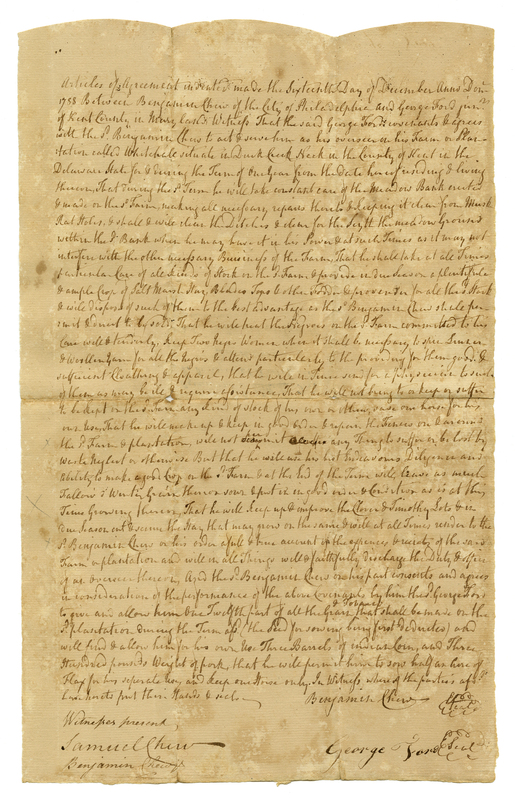 Articles of Agreement indented & made the Sixteenth Day of December Anno Dom
1788 Between Benjamin Chew of the City of Philadelphia and George Ford junr
of Kent County in Maryland Witness That the said George Ford covenants & agrees
with the sd Benjamin Chew to act & serve him as his overseer on his Farm or Plan-
tation called Whitehall situate in Duck Creek Neck in the County of Kent in the
Delaware State for & during the Term of One Year from the date hereof residing & living
thereon, That during the sd Term he will take constant care of the Meadow Bank erected
& made on the sd Farm making all necessary repairs thereto & keeping it clear from Musk
Rat Holes, & shall & will clear the Ditches & clear for the Scyth the meadow Ground
within the sd Bank when he may have it in his Power & at such Times as it may not
interfere with the other necessary Business of the Farm, That he shall take at all Times
particular Care of all kinds of Stock on the sd Farm & provide in due Season a plentiful
& ample Crop of Salt Marsh Hay Blades Tops & other Fodder & provender for all the Stock
& will dispose of such of them to the best advantage as the sd Benjamin Chew shall per-
mit & direct to be sold; That he will treat the Negroes on the sd Farm committed to his
Care well & tenderly, keep Two Negro Women when it shall be necessary to spin Linnen
& Woollen Yarn for all the Negroes & attend particularly to the providing for them good &
sufficient Cloathing & apparel, that he will in Times send for a physician to such
of them as may be ill & require assistance, That he will not bring to or keep or suffer
to be kept on the Farm any kind of stock of his own or others, save one horse for his
own Use, That he will make up & keep in good order & repair the Fences on & around
the sd Farm & plantation, will not commit any Thing to suffer or be lost by
waste neglect or otherwise But that he will use his best Endeavours Diligence and
Ability to make a good Crop on the sd Farm & at the End of the Term will leave as much
Fallow & Winter Grain thereon sown & put in in good order & Condition as is at this
Time Growing thereon, That he will keep up & improve the Clover & Timothy Lots & in
due Season cut & secure the Hay that may grow on the same & will at all Times render to the
sd Benjamin Chew or his order a just & true account of the expences & receipts of the said
Farm or plantation and will in all Things well & faithfully discharge the Duty & office
of an Overseer thereon, And the sd Benjamin Chew on his part consents and agrees
in consideration of the performance of the above Covenants by him the sd George Ford
to give and allow him One Twelfth part of all the Grain that shall be made on the
sd plantation during the Term afsd (the Seed for sowing being first deducted) and
will find & allow him for his own Use Three Barrels of Indian Corn, and Three
Hundred pounds Weight of pork, that he will permit him to sow half an Acre of
Flax for his separate Use, and keep one Horse only. In Witness whereof the parties afsd
have hereto put their Hands & seals
Benjamin Chew Seal
Witnesses present,
Samuel Chew
Benjamin Chew jr
George Ford Seal